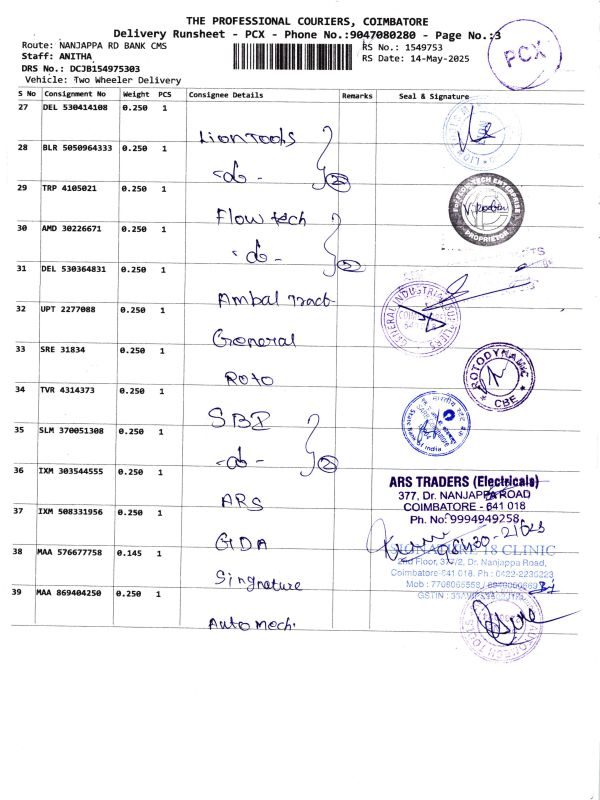 THE PROFESSIONAL COURIERS, COIMBATORE
Delivery Runsheet - PCX - Phone No.:9047080280 - Page No.:3
Route: NANJAPPA RD BANK CMS
RS No.: 1549753
Staff: ANITHA
RS Date: 14-May-2025
DRS No.: DCJB154975303
Vehicle: Two Wheeler Delivery
PCX
S No Consignment No Weight PCS Consignee Details Remarks Seal & Signature
27 DEL 530414108 0.250 1 Lion Tools
28 BLR 5050964333 0.250 1 -do- 2
29 TRP 4105021 0.250 1 Flow tech
30 AMD 30226671 0.250 1 -do- 2
31 DEL 530364831 0.250 1 Ambal Tract-
32 UPT 2277088 0.250 1 General
33 SRE 31834 0.250 1 Roto
34 TVR 4314373 0.250 1 SBI
35 SLM 370051308 0.250 1 -do- 2
36 IXM 303544555 0.250 1 ARS
37 IXM 508331956 0.250 1 GDA
38 MAA 576677758 0.145 1 Singnature
39 MAA 869404250 0.250 1 Automech.
PROPRIETOR
GENERAL INDUSTRIAL SUPPLIERS
ROTODYNAMIC
CBE
ARS TRADERS (Electricals)
377, Dr. NANJAPPA ROAD
COIMBATORE - 641 018
Ph. No: 9994949258
SIGNATURE 18 CLINIC
2nd Floor, 377/2, Dr. Nanjappa Road,
Coimbatore-641 018. Ph : 0422-2236223
Mob : 7708065558
GSTIN :